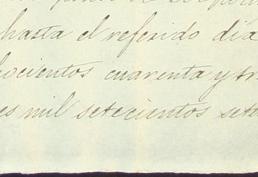 hasta el referido dia
ocientos cuarenta y tr
es mil setecientos sete